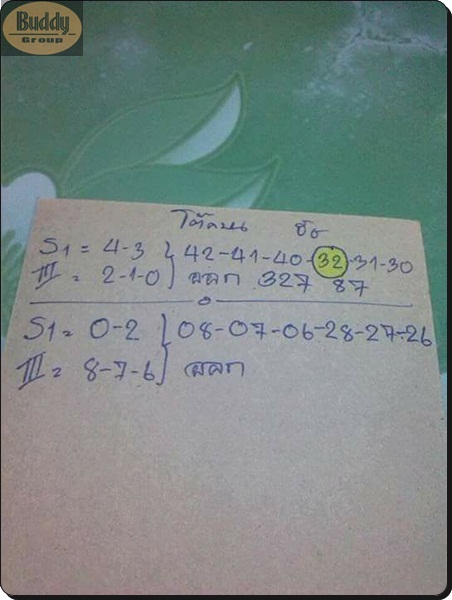 Buddy
Group
โต๊ดบน ชัช
S1 = 4-3 } 42-41-40-32-31-30
III = 2-1-0 } ออก 327 87
S1= 0-2 } 08-07-06-28-27-26
III = 8-7-6 } ออก